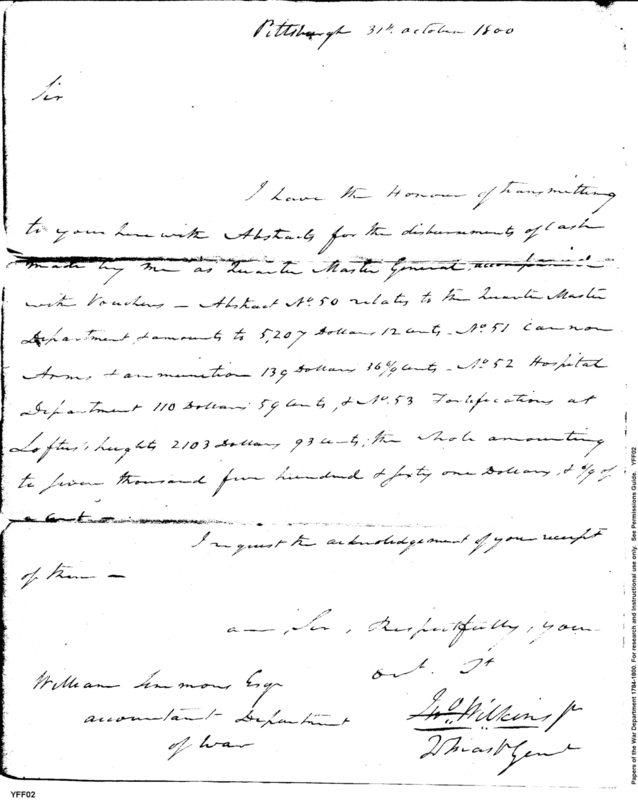 Pittsburgh 31st October 1800
Sir
I have the Honour of transmitting
to you herewith Abstracts for the disbursments of Cash
made by me as Quarter Master General accompanied
with Vouchers – Abstract No. 50 relates to the Quarter Master
Department & amounts to 5,207 Dollars 12 Cents – No. 51 Cannon
Arms & ammunition 139 Dollars 36 6/9 Cents – No. 52 Hospital
Department 110 Dollars 59 Cents, & No. 53 Fortifications at
Loftus's heights 2103 Dollars 93 Cents; the whole amounting
to seven thousand five hundred & sixty one Dollars, & 6/9 of
a Cent –
I request the acknoledgement of your receipt
of them –
am, Sir, Respectfully, your
Obt. St
William Simmons Esqr
accountant Department
of War
Jno. Wilkins Jr
Qr Mastr Genl
YFF02
Papers of the War Department 1784-1800. For research and instructional use only. See Permissions Guide. YFF02